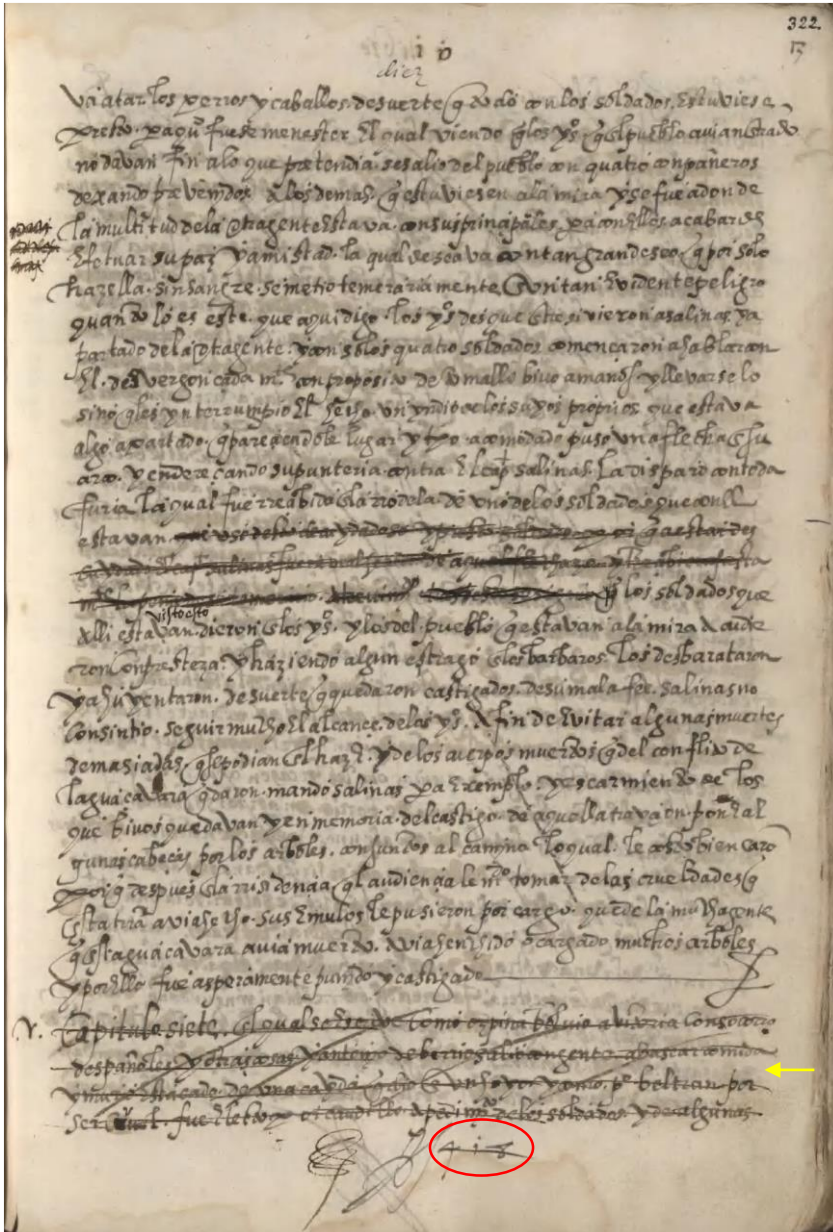 322.
10
diez
13
va atar los perros y caballos. de suerte q todo con los soldados. Estuviese a
preto. pa qn fuese menester El qual viendo q los ys. q el pueblo avian entrado
no davan fin a lo que pretendia. se salio del pueblo con quatro conpañeros
dexando prevenidos a los demas. q estuviesen a la mira y se fue adonde
la multitud de la otra gente Estava. con sus principales, pa con ellos acabar de
Efetuar su paz y amistad. la qual deseava con tan grande seo. q por solo
hazella. sin sangre. se metio temerariamente En tan Evidente peligro
quando lo es este. que aqui digo. los ys. desque entre si vieron a salinas. ya
partado de la otra gente. y con solos quatro soldados començaron a hablar con
El. desvergonçada mte. con proposito de tomallo bivo a manos y llevarselo
sino q les ynterrumpio El hecho. un yndio de los suyos proprios que estava
algo apartado. q pareciendole lugar y tpo. acomodado puso una flecha En su
arco. y endereçando su punteria. contra El capn salinas. la disparo con toda
furia la qual fue rrecibida En la rrodela. de uno de los soldados que con El
estavan
los soldados que
visto esto
alli estavan. dieron En los ys. y los del pueblo q estavan a la mira acudie
ron con presteza. y haziendo algun estrago En los barbaros. los desbarataron
y ahuyentaron. de suerte q quedaron castigados. de su mala fee. salinas no
consintio. seguir mucho El alcance. de los ys. a fin de Evitar algunas muertes
demasiadas q se podian En el hazer. y de los cuerpos muertos q del conflito de
la guaçavara qdaron. mando salinas pa Exemplo. y escarmiento de los
que bivos quedavan y en memoria. del castigo. de aquella traycion. poner al
gunas cabeças por los arboles. conjuntos al camino lo qual. le costo bien caro
porq despues En la rresidencia q l audiencia le mdo tomar de las crueldades q
En esta trra avia hecho. sus Emulos le pusieron por cargo. que de la mucha gente
q En esta guaçavara avia muerto. avia henchido o cargado muchos arboles
y por Ello fue asperamente punido y castigado
Capitulo siete. En el qual se escrive como ospina bolvio a vitoria con socorro
despañoles y otras cosas. y antonio de berrio salio con gente a buscar comida
y murio estacado. de una cayda q dio En un hoyo y como. po. beltran por
ser. fue Eleto por caudillo. a pedimto. de los soldados y de algunas